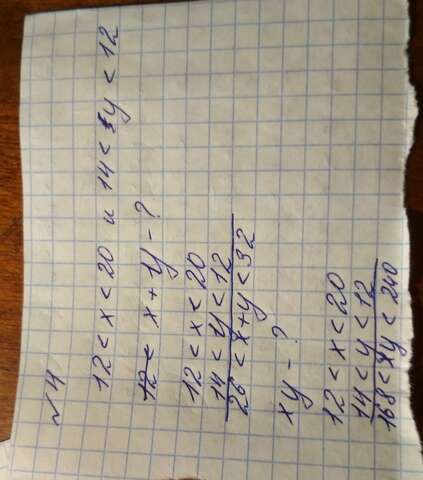 №4
12 < x < 20 и 14 < y < 12
12 < x + y - ?
12 < x < 20
14 < y < 12
26 < x + y < 32
xy - ?
12 < x < 20
14 < y < 12
168 < xy < 240